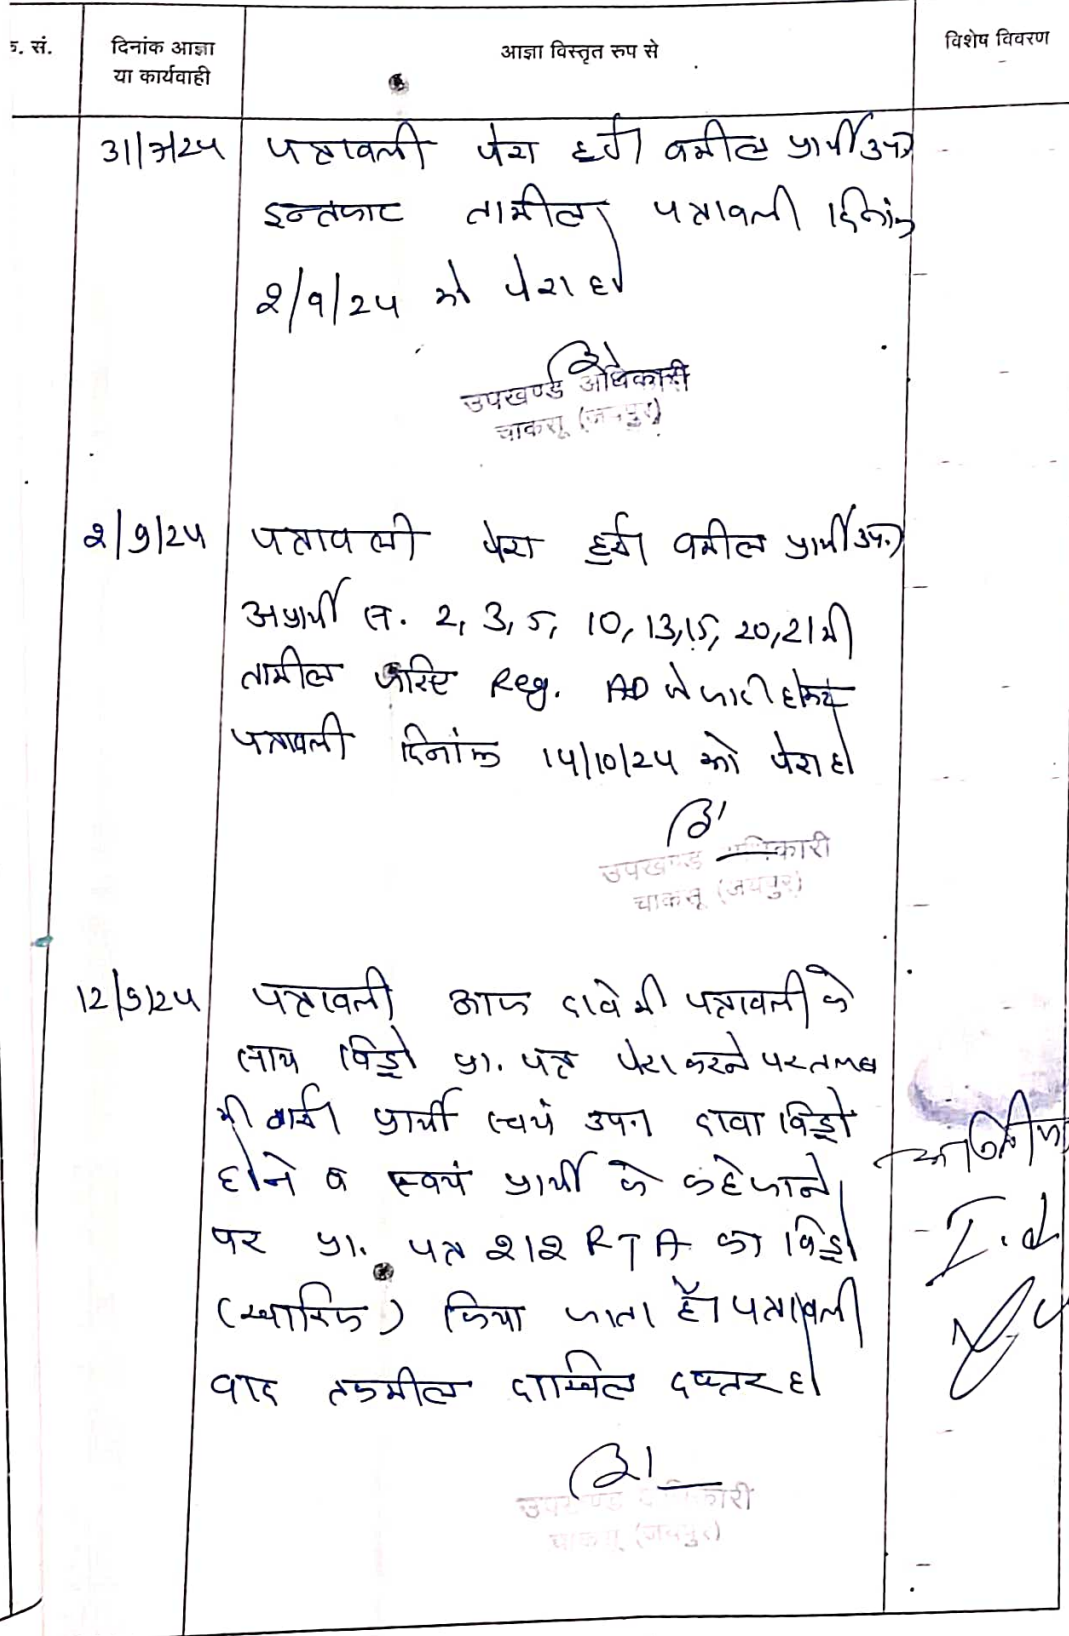 क. सं. दिनांक आज्ञा या कार्यवाही आज्ञा विस्तृत रुप से विशेष विवरण
31/7/24 पत्रावली पेश हुई। वकील प्रार्थी उप०
इन्तजार तामील। पत्रावली दिनांक
2/9/24 को पेश हो।
उपखण्ड अधिकारी
चाकसू (जयपुर)
2/9/24 पत्रावली पेश हुई। वकील प्रार्थी उप०।
अप्रार्थी सं. 2, 3, 5, 10, 13, 15, 20, 21 की
तामील जरिए Reg. AD से जारी होकर
पत्रावली दिनांक 14/10/24 को पेश हो।
उपखण्ड अधिकारी
चाकसू (जयपुर)
12/9/24 पत्रावली आज दावे की पत्रावली के
साथ विड्रो प्रा. पत्र पेश करने पर तलब
की गई। प्रार्थी स्वयं उप०। दावा विड्रो
होने व स्वयं प्रार्थी के कहे जाने
पर प्रा. पत्र 212 RTA का विड्रो
(खारिज) किया जाता है। पत्रावली
बाद तकमील दाखिल दफ्तर हो।
I.d
उपखण्ड अधिकारी
चाकसू (जयपुर)